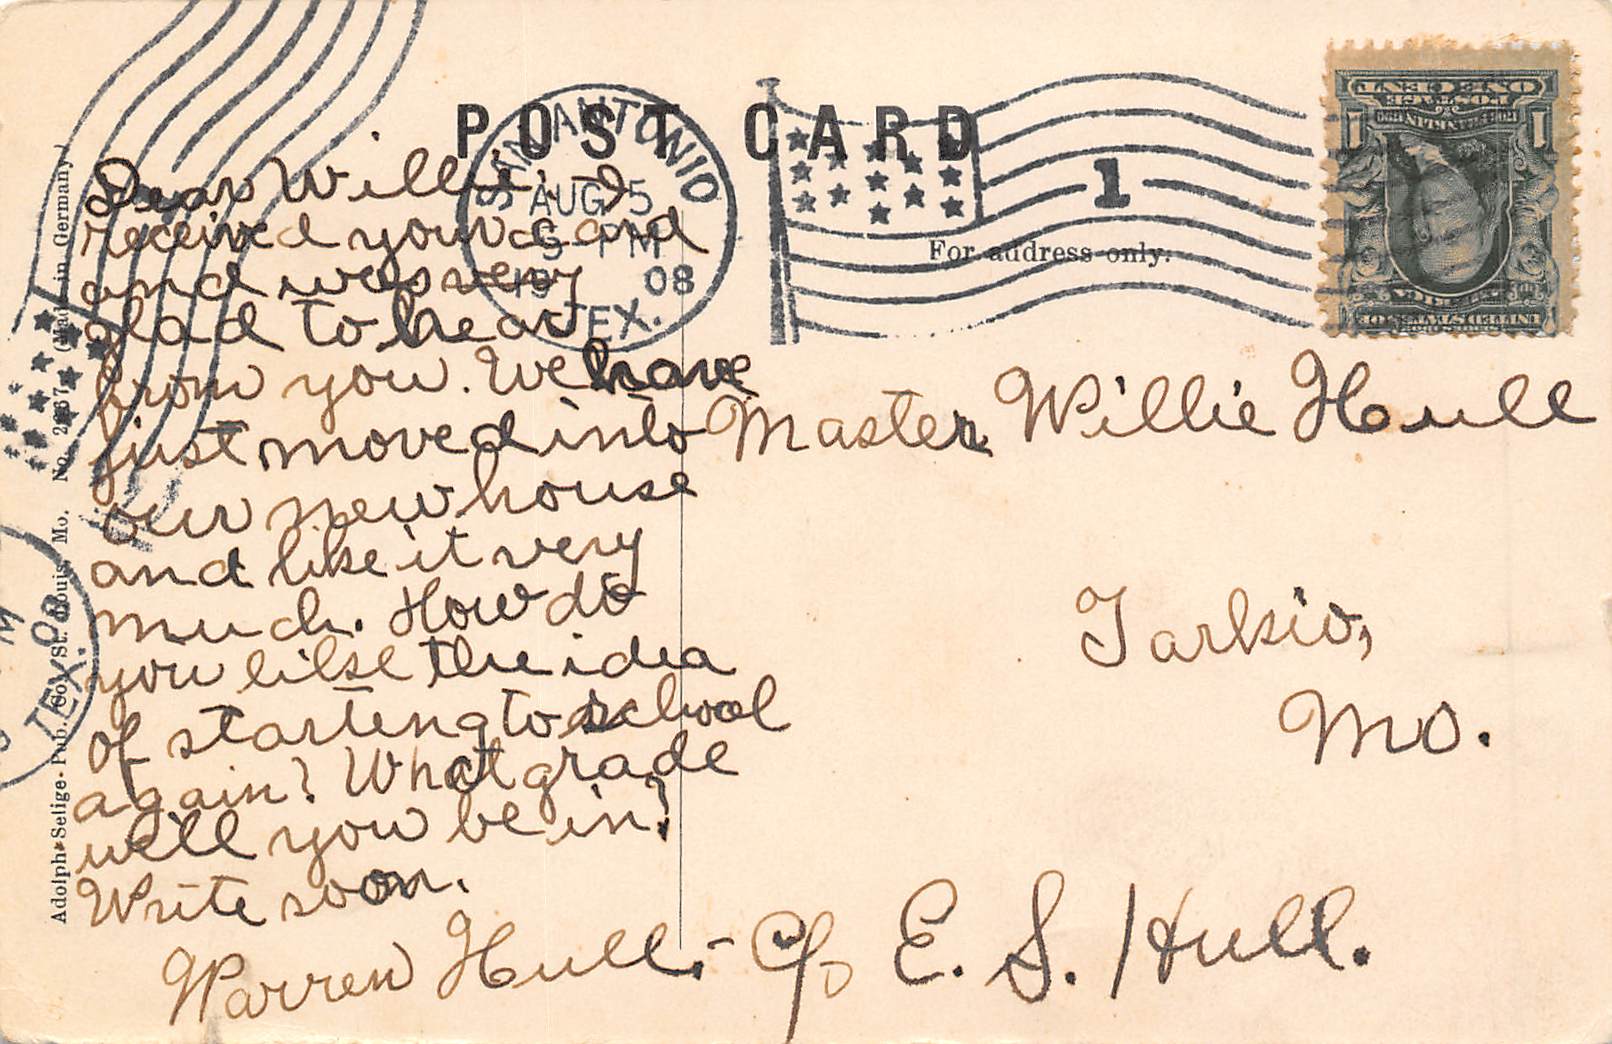 POST CARD
SAN ANTONIO
AUG 5
5 PM
19 08
TEX.
1
For address only.
ONE CENT
POSTAGE
1 1
UNITED STATES OF AMERICA
Dear Willie:- I
received your card
and was very
glad to hear
from you. We have
just moved into
our new house
and like it very
much. How do
you like the idea
of starting to school
again? What grade
will you be in?
Write soon.
Warren Hull.-
Master Willie Hull
Tarkio,
Mo.
C/o E. S. Hull.
Adolph Selige Pub. Co. St. Louis Mo. No. (Made in Germany)
M
08
TEX.